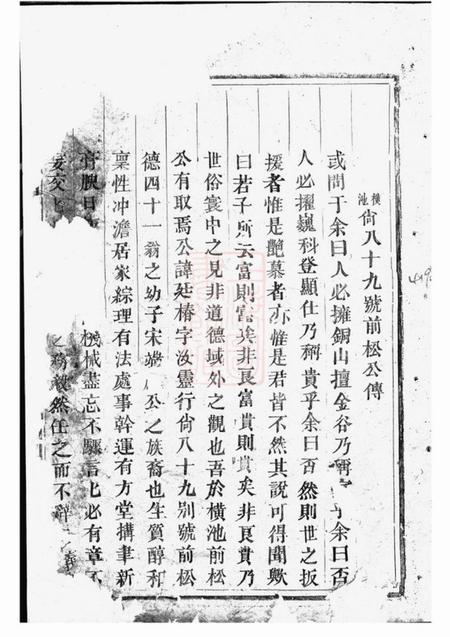 橫池尙八十九號前松公傳
或問于余曰人必擁銅山擅金谷乃稱 乎余曰否
人必擢巍科登顯仕乃稱貴乎余曰否然則世之扳
援者惟是艷慕者亦惟是君皆不然其說可得聞歟
曰若子所云富則富矣非良富貴則貴矣非良貴乃
世俗寰中之見非道德域外之觀也吾於橫池前松
公有取焉公諱廷椿字汝靈行尙八十九别號前松
德四十一翁之幼子宋端 公之族裔也生質醇和
稟性冲澹居家綜理有法處事幹運有方堂搆聿新
膏腴日 機械盡忘不驕言必有章不
妄交 之務毅然任之而不辭